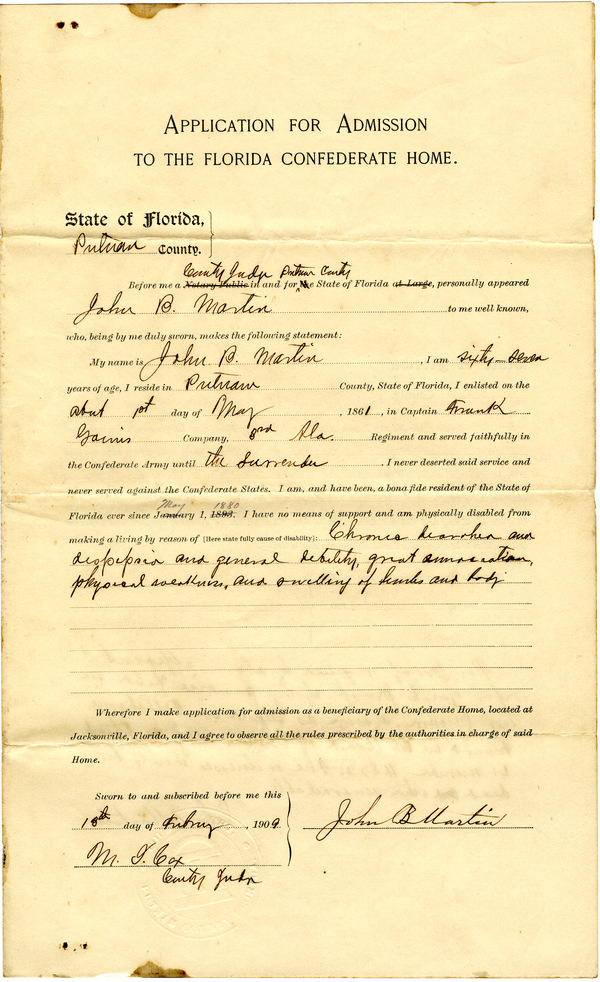 APPLICATION FOR ADMISSION
TO THE FLORIDA CONFEDERATE HOME.
State of Florida,
Putnam County.
County Judge Putnam County
Before me a Notary Public in and for the State of Florida at Large, personally appeared
John B. Martin to me well known,
who, being by me duly sworn, makes the following statement:
My name is John B. Martin, I am sixty-seven
years of age, I reside in Putnam County, State of Florida, I enlisted on the
about 1st day of May, 1861, in Captain Frank
Gains Company, 3rd Ala. Regiment and served faithfully in
the Confederate Army until the Surrender. I never deserted said service and
never served against the Confederate States. I am, and have been, a bona fide resident of the State of
May 1880
Florida ever since January 1, 1893. I have no means of support and am physically disabled from
making a living by reason of [Here state fully cause of disability]: Chronic diarrhea and
dispepsia and general debility, great emaciation,
physical weakness, and swelling of limbs and body
Wherefore I make application for admission as a beneficiary of the Confederate Home, located at
Jacksonville, Florida, and I agree to observe all the rules prescribed by the authorities in charge of said
Home.
Sworn to and subscribed before me this
day of Februry, 1909
John B Martin
Cox
County Judge